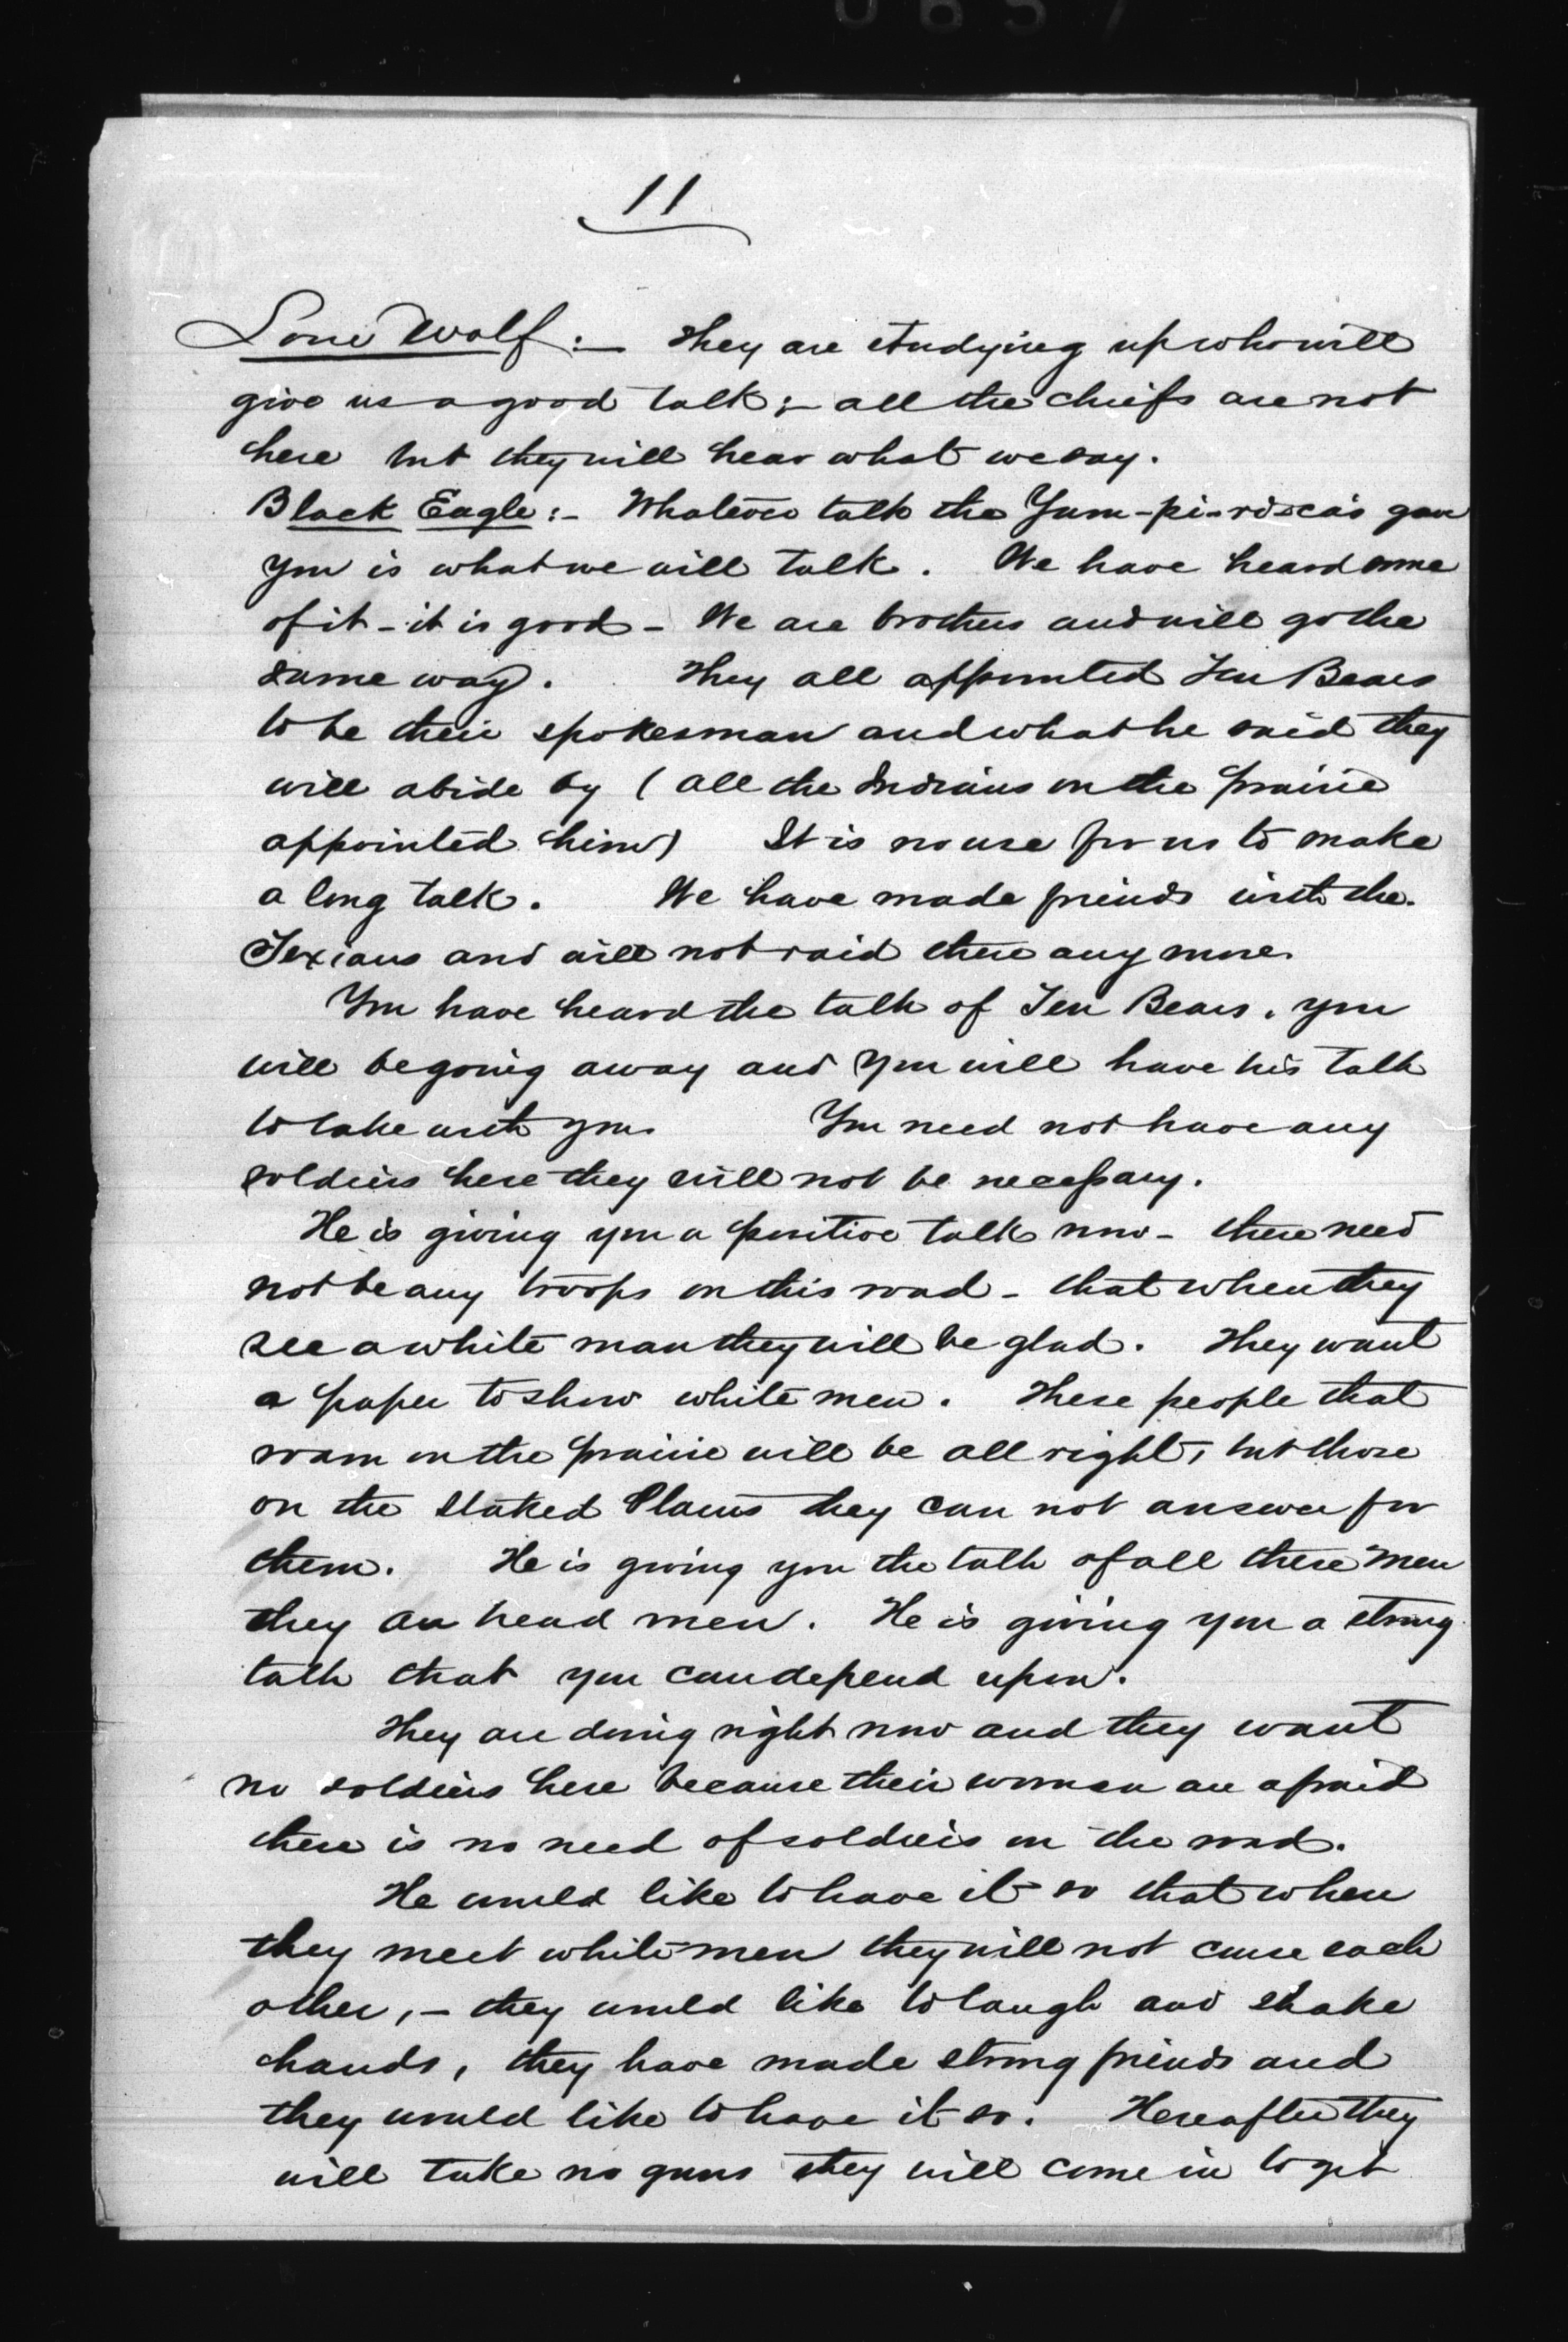 11
Lone Wolf:— They are studying up who will
give us a good talk;— all the chiefs are not
here but they will hear what we say.
Black Eagle:- Whatever talk the Yam-pi-ri-ca's gave
you is what we will talk. We have heard some
of it - it is good - We are brothers and will go the
same way. They all appointed Ten Bears
to be their spokesman and what he said they
will abide by (all the Indians on the prairie
appointed him) It is no use for us to make
a long talk. We have made friends with the
Texians and will not raid there any more.
You have heard the talk of Ten Bears. you
will be going away and you will have his talk
to take with you. You need not have any
soldiers here they will not be necessary.
He is giving you a positive talk now - there need
not be any troops on this road - that when they
see a white man they will be glad. They want
a paper to show white men. These people that
roam on the prairie will be all right, but those
on the Staked Plains they can not answer for
them. He is giving you the talk of all these men
they are head men. He is giving you a strong
talk that you can depend upon.
They are doing right now and they want
no soldiers here because their women are afraid
there is no need of soldiers on the road.
He would like to have it so that when
they meet white men they will not curse each
other, — they would like to laugh and shake
hands, they have made strong friends and
they would like to have it so. Hereafter they
will take no guns they will come in to get